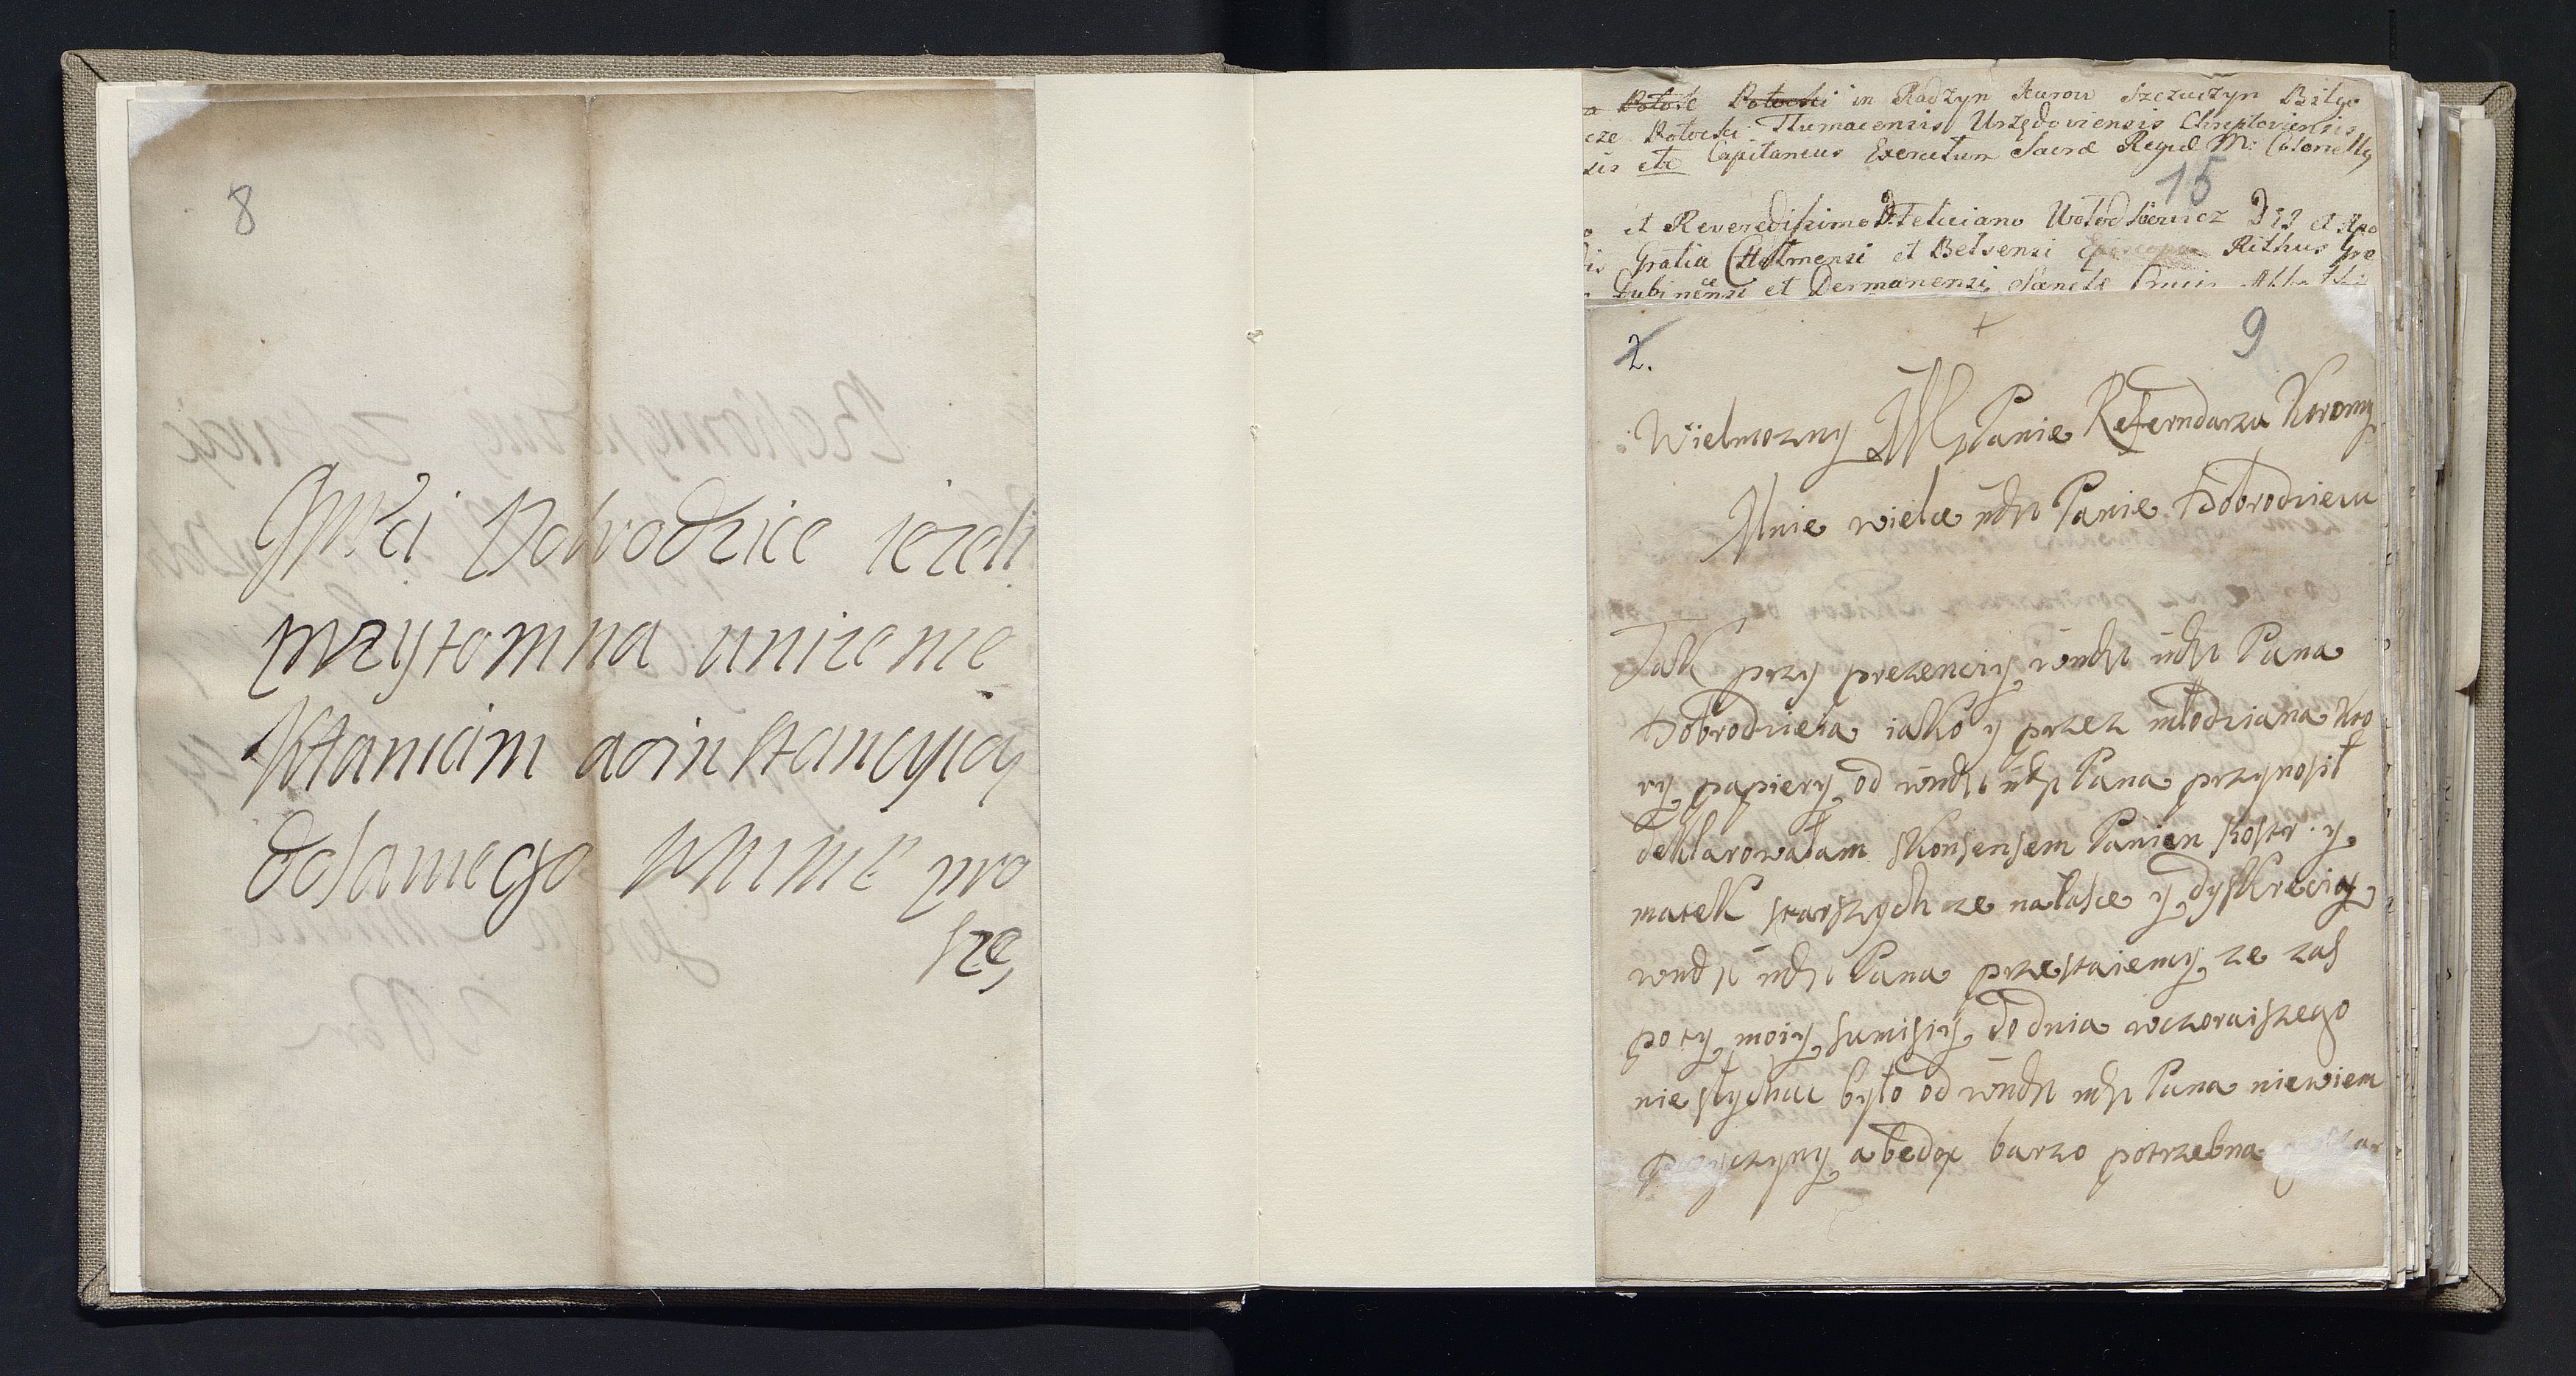 8
JMści Dobrodzice iezeli
przytomna unizenie
kłaniam aoinstancyią
dosamego pro
szę
Potocki in Radzyn Kurow Szczuczyn Bilgo
Potocki Tłumacensis Urzędoviensis Chreptoviensis
sis etc Capitaneus Exercituum Sacræ Regiæ M: Colonelly
15
et Reveredissimo D. Feliciano Wołodkowicz DEI et Apo
Gratia Chełmensi et Belsensi Episcopo Rithus Gre
Dubinensi et Dermanensi Sanctæ Crucis
9
2.
Wielmozny Panie Referndarzu Koronny
Mnie wielce mść Panie Dobrodzieiu
Jak przy prezenciy wmść mść Pana
Dobrodzieia iako y przez młodziana kto
ry papiery od wmść mść Pana przynosił
deklarowałam skonsensem Panien siostr y
matek starszych ze nałasce y dyskreciy
wmść mść Pana przestaiemy ze zas
poty moiy sumisiy do dnia wczoraiszego
nie słychac było od wmść mść Pana niewiem
przyczyny abedąc barzo potrzebna